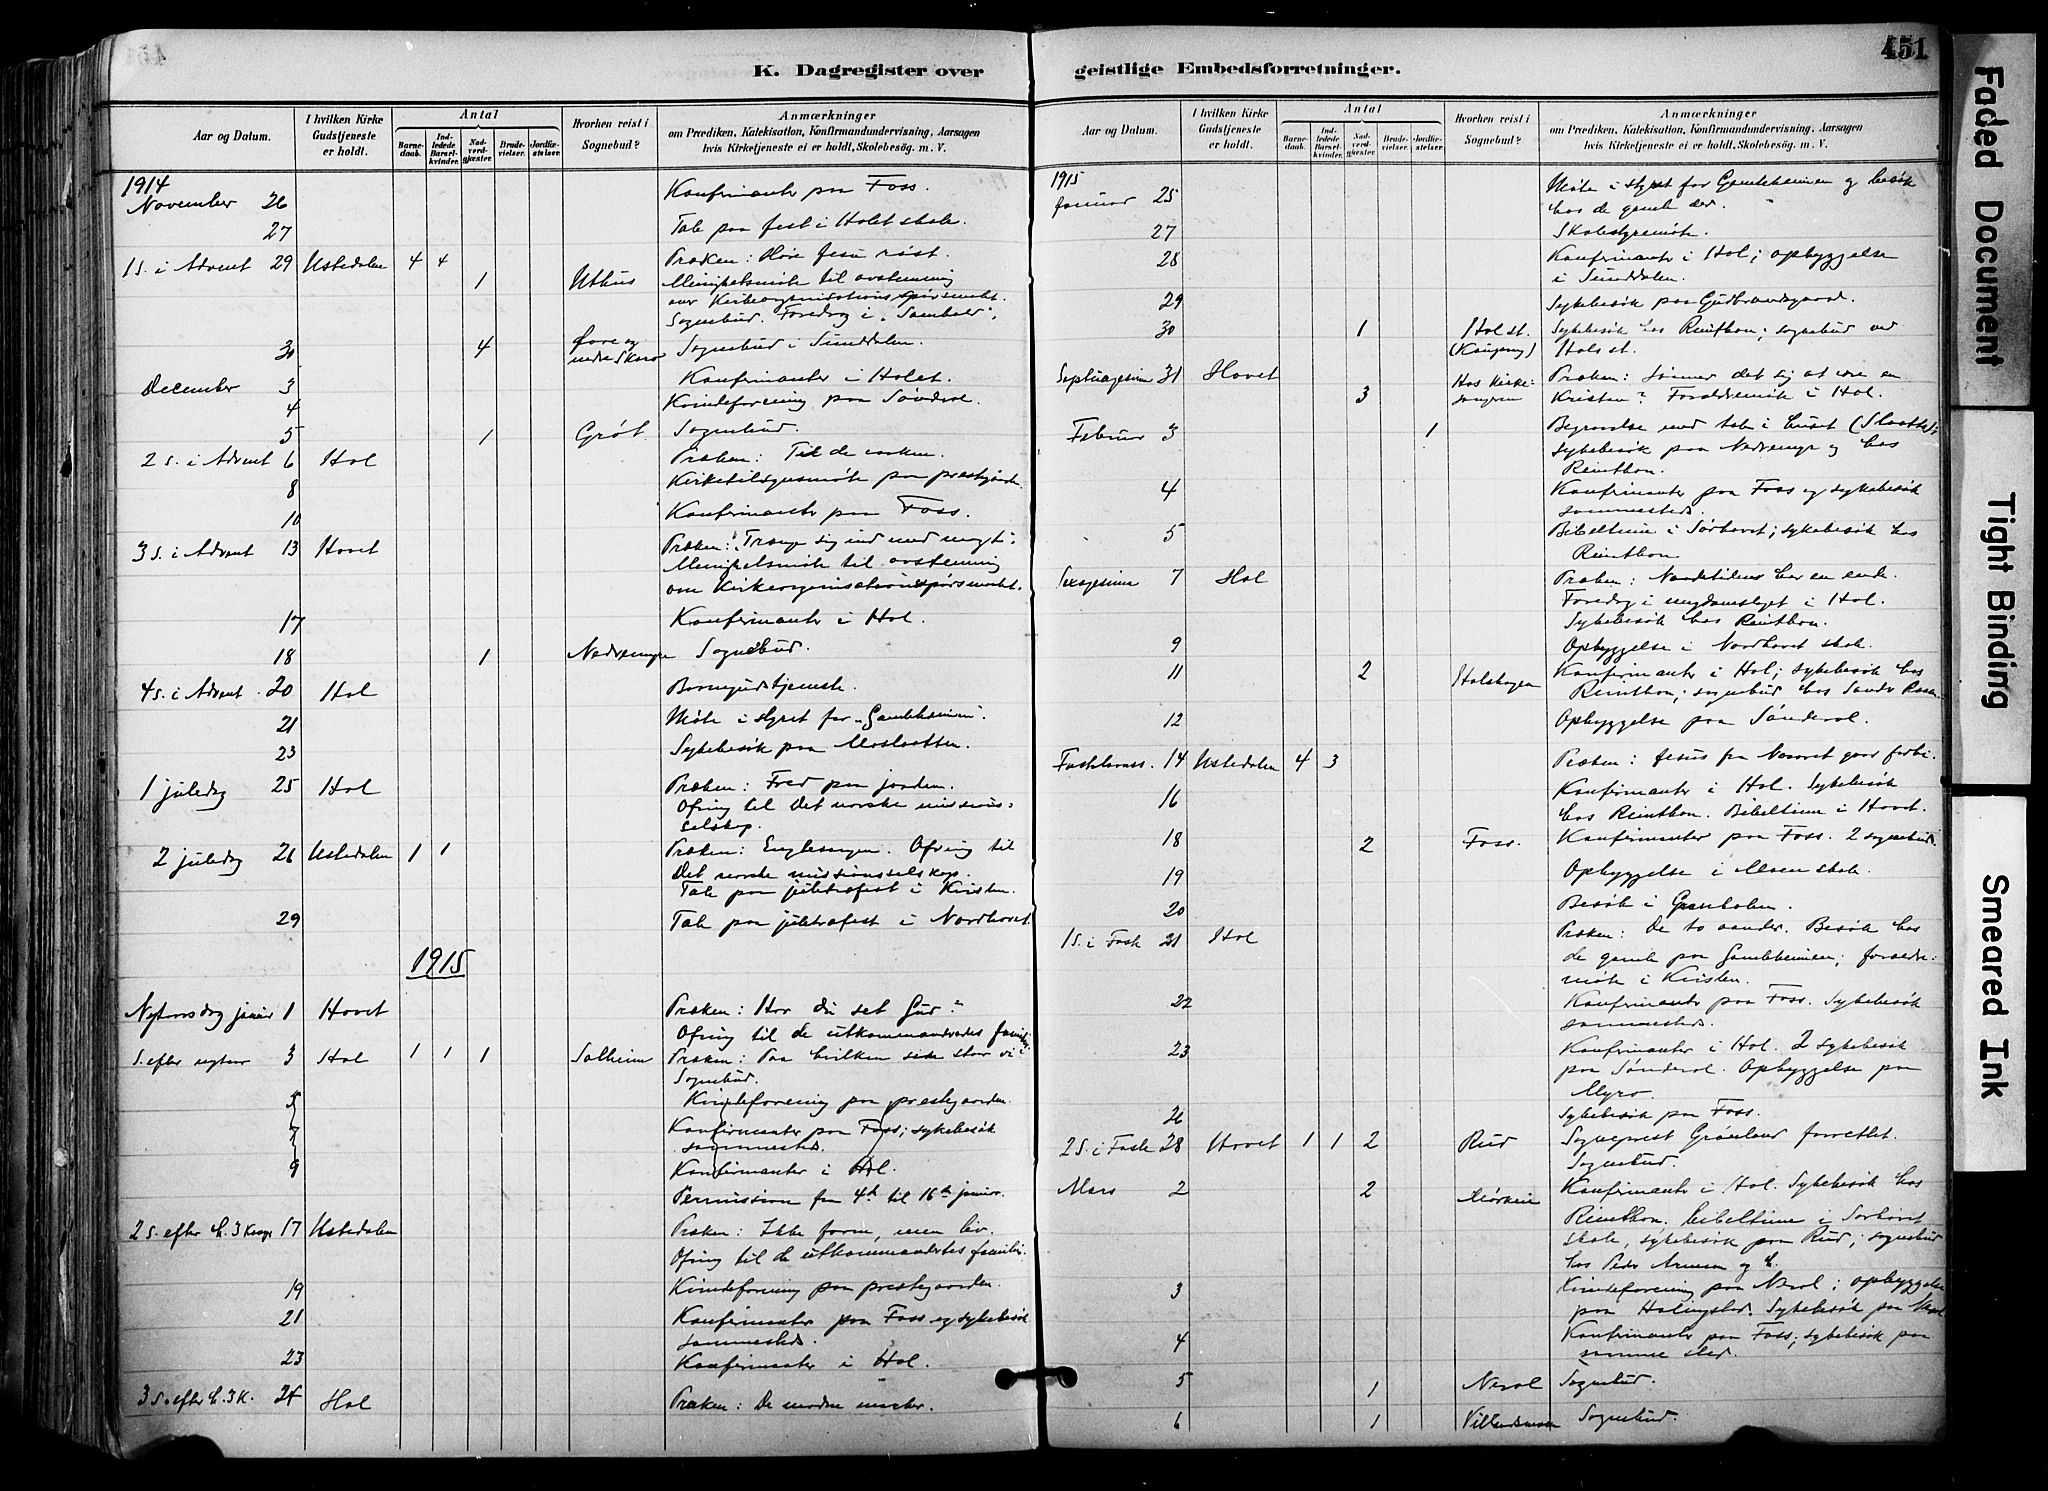 451
K. Dagregister over
geistlige Embedsforretninger.
Aar og Datum. I hvilken Kirke Gudstjeneste er holdt. Antal Barnedaab. Indledede Barselkvinder. Nadverdgjæster. Brudevielser. Jordfæstelser. Hvorhen reist i Sognebud? Anmærkninger om Prædiken, Katekisation, Konfirmandundervisning, Aarsagen hvis Kirketjeneste ei er holdt, Skolebesög. m. V.
1914
November 26 Konfirmanter paa Foss.
27 Tale paa fest i Holet skole.
1 S. i Advent 29 Ustedalen 4 4 Præken: Høie Jesu røst.
1 Uthus Menighetsmöte til avstemning
over Kirkeorganisationsspörsmaalet.
Sognebud. Foredrag i "Samhold".
30 4 Sognebud i Sunddalen.
December 3 Konfirmanter i Holet.
4 Kvindeforening paa Sønderol.
5 1 Grøt. Sognebud.
2 S. i Advent 6 Hol Præken: Til de vaken.
8 Kirketilsynsmöte paa prestgaarden
10 Konfirmanter paa Foss.
3 S. i Advent 13 Hovet Præken: "Trænge sig ind med magt".
Menighetsmöte til avstemning
om Kirkeorganisationsspörsmaalet.
17 Konfirmanter i Hol.
18 1 Sognebud.
4 S. i Advent 20 Hol Barnegudstjeneste.
21 Möte i styret for "Gamleheimen".
23 Sykebesök paa Moslaatten.
1 juledag 25 Hol Præken: Fred paa jorden.
Ofring til Det norske missions-
selskap.
2 juledag 26 Ustedalen 1 1 Præken: Englesangen. Ofring til
Det norske missionsselskap.
Tale paa juletræfest i Kvisten.
29 Tale paa juletræfest i Nordhovet.
1915
Nytaarsdag januar 1 Hovet Præken: Har du set Gud?
Ofring til de utkommanderedes familier.
S. efter nytaar 3 Hol 1 1 1 Solheim Præken: Paa hvilken side staar vi?
Sognebud.
5 Kvindeforening paa prestegaarden.
7 Konfirmanter paa Foss; sykebesök
sammesteds.
9 Konfirmanter i Hol.
Permission fra 4de til 16de januar.
2 S. efter h. 3 Konge 17 Ustedalen Præken: Ikke form, men liv.
Ofring til de utkommandertes familier.
19 Kvindeforening paa prestegaarden.
21 Konfirmanter paa Foss og sykebesök
sammesteds.
23 Konfirmanter i Hol.
3 S. efter h. 3 K. 24 Hol Præken: De modne marker.
Aar og Datum. I hvilken Kirke Gudstjeneste er holdt. Antal Barnedaab. Indledede Barselkvinder. Nadverdgjæster. Brudevielser. Jordfæstelser. Hvorhen reist i Sognebud? Anmærkninger om Prædiken, Katekisation, Konfirmandundervisning, Aarsagen hvis Kirketjeneste ei er holdt, Skolebesög. m. V.
1915
Januar 25 Möte i styret for Gamleheimen og besök
hos de gamle der.
27 Skolestyremöte.
28 Konfirmanter i Hol; opbyggelse
i Sunddalen.
29 Sykebesök paa Gudbrandsgaard.
30 1 Hol st. Sykebesök hos Reinthon; sognebud ved
Hol st.
Septuagesima 31 Hovet Præken: Sömmer det sig at være en
3 Hos kirke- kristen? Forældremöte i Hol.
sangeren
Februar 3 1 Begravelse med tale i huset (Slaatto);
sykebesök paa Nedremyr og hos
Reinthon.
4 Konfirmanter paa Foss og sykebesök
sammesteds.
5 Bibeltime i Sørhovet; sykebesök hos
Reinthon
Sexagesima 7 Hol Præken: Naadetiden har en ende.
Foredrag i ungdomslaget i Hol.
Sykebesök hos Reinthon.
9 Opbyggelse i Nordhovet skole.
11 2 Holshagen Konfirmanter i Hol; sykebesök hos
Reinthon; sognebud hos
12 Opbyggelse paa Sønderol.
Fastelavns. 14 Ustedalen 4 3 Præken: Jesus fra Nasaret gaar forbi.
16 Konfirmanter i Hol. Sykebesök
hos Reinthon. Bibeltime i Hovet.
18 2 Foss. Konfirmanter paa Foss. 2 sognebud.
19 Opbyggelse i Moen skole.
20 Besök i Grønholen.
1 S. i Faste 21 Hol Præken: De to aander. Besök hos
de gamle paa Gamleheimen; forældre-
möte i Kvisten.
22 Konfirmanter paa Foss. Sykebesök
sammesteds.
23 Konfirmanter i Hol. 2 sykebesök
paa Sønderol. Opbyggelse paa
Myro.
26 Sykebesök paa Foss.
2 S. i Faste 28 Hovet 1 1 2 Rud Sogneprest Grønlund forrettet.
Sognebud.
Mars 2 2 Konfirmanter i Hol. Sykebesök hos
Reinthon. Bibeltime i Sørhovet
skole, sykebesök paa Rud; sognebud
hos
3 Kvindeforening paa Nerol; opbyggelse
paa Holingstad. Sykebesök paa
4 Konfirmanter paa Foss; sykebesök paa
samme sted.
5 1 Nerol Sognebud.
6 1 Sognebud.
Faded Document
Tight Binding
Smeared Ink